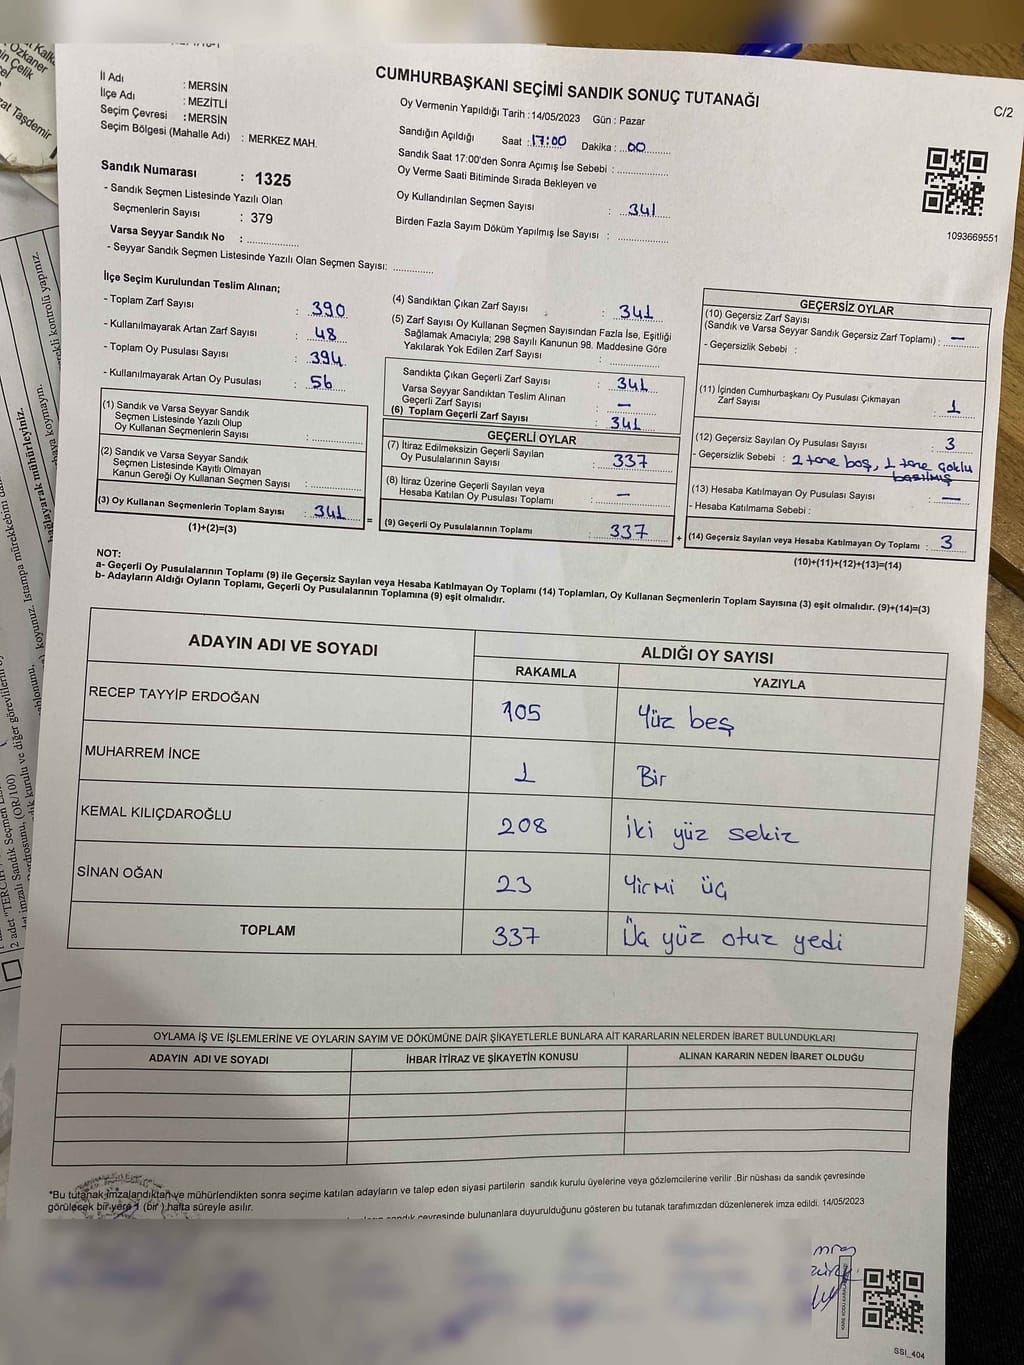 Kalk
Özkaner
in Çelik
zat Taşdemir
CUMHURBAŞKANI SEÇİMİ SANDIK SONUÇ TUTANAĞI
C/2
İl Adı : MERSİN
İlçe Adı : MEZİTLİ
Seçim Çevresi : MERSİN
Seçim Bölgesi (Mahalle Adı) : MERKEZ MAH.
Oy Vermenin Yapıldığı Tarih : 14/05/2023 Gün : Pazar
Sandığın Açıldığı Saat : 17:00 Dakika : 00
Sandık Saat 17:00'den Sonra Açımış İse Sebebi :
Oy Verme Saati Bitiminde Sırada Bekleyen ve
Oy Kullandırılan Seçmen Sayısı : 341
Birden Fazla Sayım Döküm Yapılmış İse Sayısı :
1093669551
Sandık Numarası : 1325
- Sandık Seçmen Listesinde Yazılı Olan
Seçmenlerin Sayısı : 379
Varsa Seyyar Sandık No :
- Seyyar Sandık Seçmen Listesinde Yazılı Olan Seçmen Sayısı:
İlçe Seçim Kurulundan Teslim Alınan;
- Toplam Zarf Sayısı : 390
- Kullanılmayarak Artan Zarf Sayısı : 48
- Toplam Oy Pusulası Sayısı : 394
- Kullanılmayarak Artan Oy Pusulası : 56
(1) Sandık ve Varsa Seyyar Sandık
Seçmen Listesinde Yazılı Olup
Oy Kullanan Seçmenlerin Sayısı :
(2) Sandık ve Varsa Seyyar Sandık
Seçmen Listesinde Kayıtlı Olmayan
Kanun Gereği Oy Kullanan Seçmen Sayısı :
(3) Oy Kullanan Seçmenlerin Toplam Sayısı : 341
(1)+(2)=(3)
=
(4) Sandıktan Çıkan Zarf Sayısı : 341
(5) Zarf Sayısı Oy Kullanan Seçmen Sayısından Fazla İse, Eşitliği
Sağlamak Amacıyla; 298 Sayılı Kanunun 98. Maddesine Göre
Yakılarak Yok Edilen Zarf Sayısı :
Sandıkta Çıkan Geçerli Zarf Sayısı : 341
Varsa Seyyar Sandıktan Teslim Alınan
Geçerli Zarf Sayısı : —
(6) Toplam Geçerli Zarf Sayısı : 341
GEÇERLİ OYLAR
(7) İtiraz Edilmeksizin Geçerli Sayılan
Oy Pusulalarının Sayısı : 337
(8) İtiraz Üzerine Geçerli Sayılan veya
Hesaba Katılan Oy Pusulası Toplamı : —
(9) Geçerli Oy Pusulalarının Toplamı : 337
+
GEÇERSİZ OYLAR
(10) Geçersiz Zarf Sayısı
(Sandık ve Varsa Seyyar Sandık Geçersiz Zarf Toplamı) : —
- Geçersizlik Sebebi :
(11) İçinden Cumhurbaşkanı Oy Pusulası Çıkmayan
Zarf Sayısı : 1
(12) Geçersiz Sayılan Oy Pusulası Sayısı : 3
- Geçersizlik Sebebi : 2 tane boş, 1 tane çoklu
basılmış
(13) Hesaba Katılmayan Oy Pusulası Sayısı : —
- Hesaba Katılmama Sebebi :
(14) Geçersiz Sayılan veya Hesaba Katılmayan Oy Toplamı : 3
(10)+(11)+(12)+(13)=(14)
NOT:
a- Geçerli Oy Pusulalarının Toplamı (9) ile Geçersiz Sayılan veya Hesaba Katılmayan Oy Toplamı (14) Toplamları, Oy Kullanan Seçmenlerin Toplam Sayısına (3) eşit olmalıdır. (9)+(14)=(3)
b- Adayların Aldığı Oyların Toplamı, Geçerli Oy Pusulalarının Toplamına (9) eşit olmalıdır.
ADAYIN ADI VE SOYADI ALDIĞI OY SAYISI
RAKAMLA YAZIYLA
RECEP TAYYİP ERDOĞAN 105 Yüz beş
MUHARREM İNCE 1 Bir
KEMAL KILIÇDAROĞLU 208 iki yüz sekiz
SİNAN OĞAN 23 Yirmi üç
TOPLAM 337 Üç yüz otuz yedi
OYLAMA İŞ VE İŞLEMLERİNE VE OYLARIN SAYIM VE DÖKÜMÜNE DAİR ŞİKAYETLERLE BUNLARA AİT KARARLARIN NELERDEN İBARET BULUNDUKLARI
ADAYIN ADI VE SOYADI İHBAR İTİRAZ VE ŞİKAYETİN KONUSU ALINAN KARARIN NEDEN İBARET OLDUĞU
*Bu tutanak imzalandıktan ve mühürlendikten sonra seçime katılan adayların ve talep eden siyasi partilerin sandık kurulu üyelerine veya gözlemcilerine verilir .Bir nüshası da sandık çevresinde
görülecek bir yere 1 (bir ) hafta süreyle asılır.
sandık çevresinde bulunanlara duyurulduğunu gösteren bu tutanak tarafımızdan düzenlenerek imza edildi. 14/05/2023
SSI_404